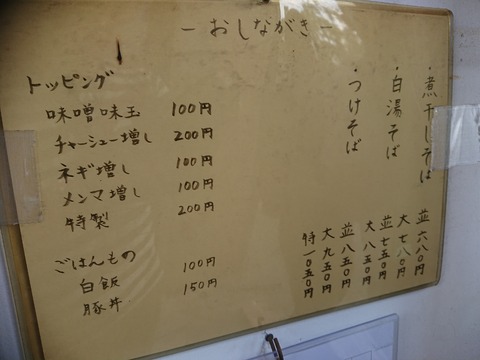 －おしながき－
・煮干しそば
並 六八〇円
大 七八〇円
・白湯そば
並 七五〇円
大 八五〇円
・つけそば
並 八五〇円
大 九五〇円
特 一〇五〇円
トッピング
味噌味玉 100円
チャーシュー増し 200円
ネギ増し 100円
メンマ増し 100円
特製 200円
ごはんもの
白飯 100円
豚丼 150円